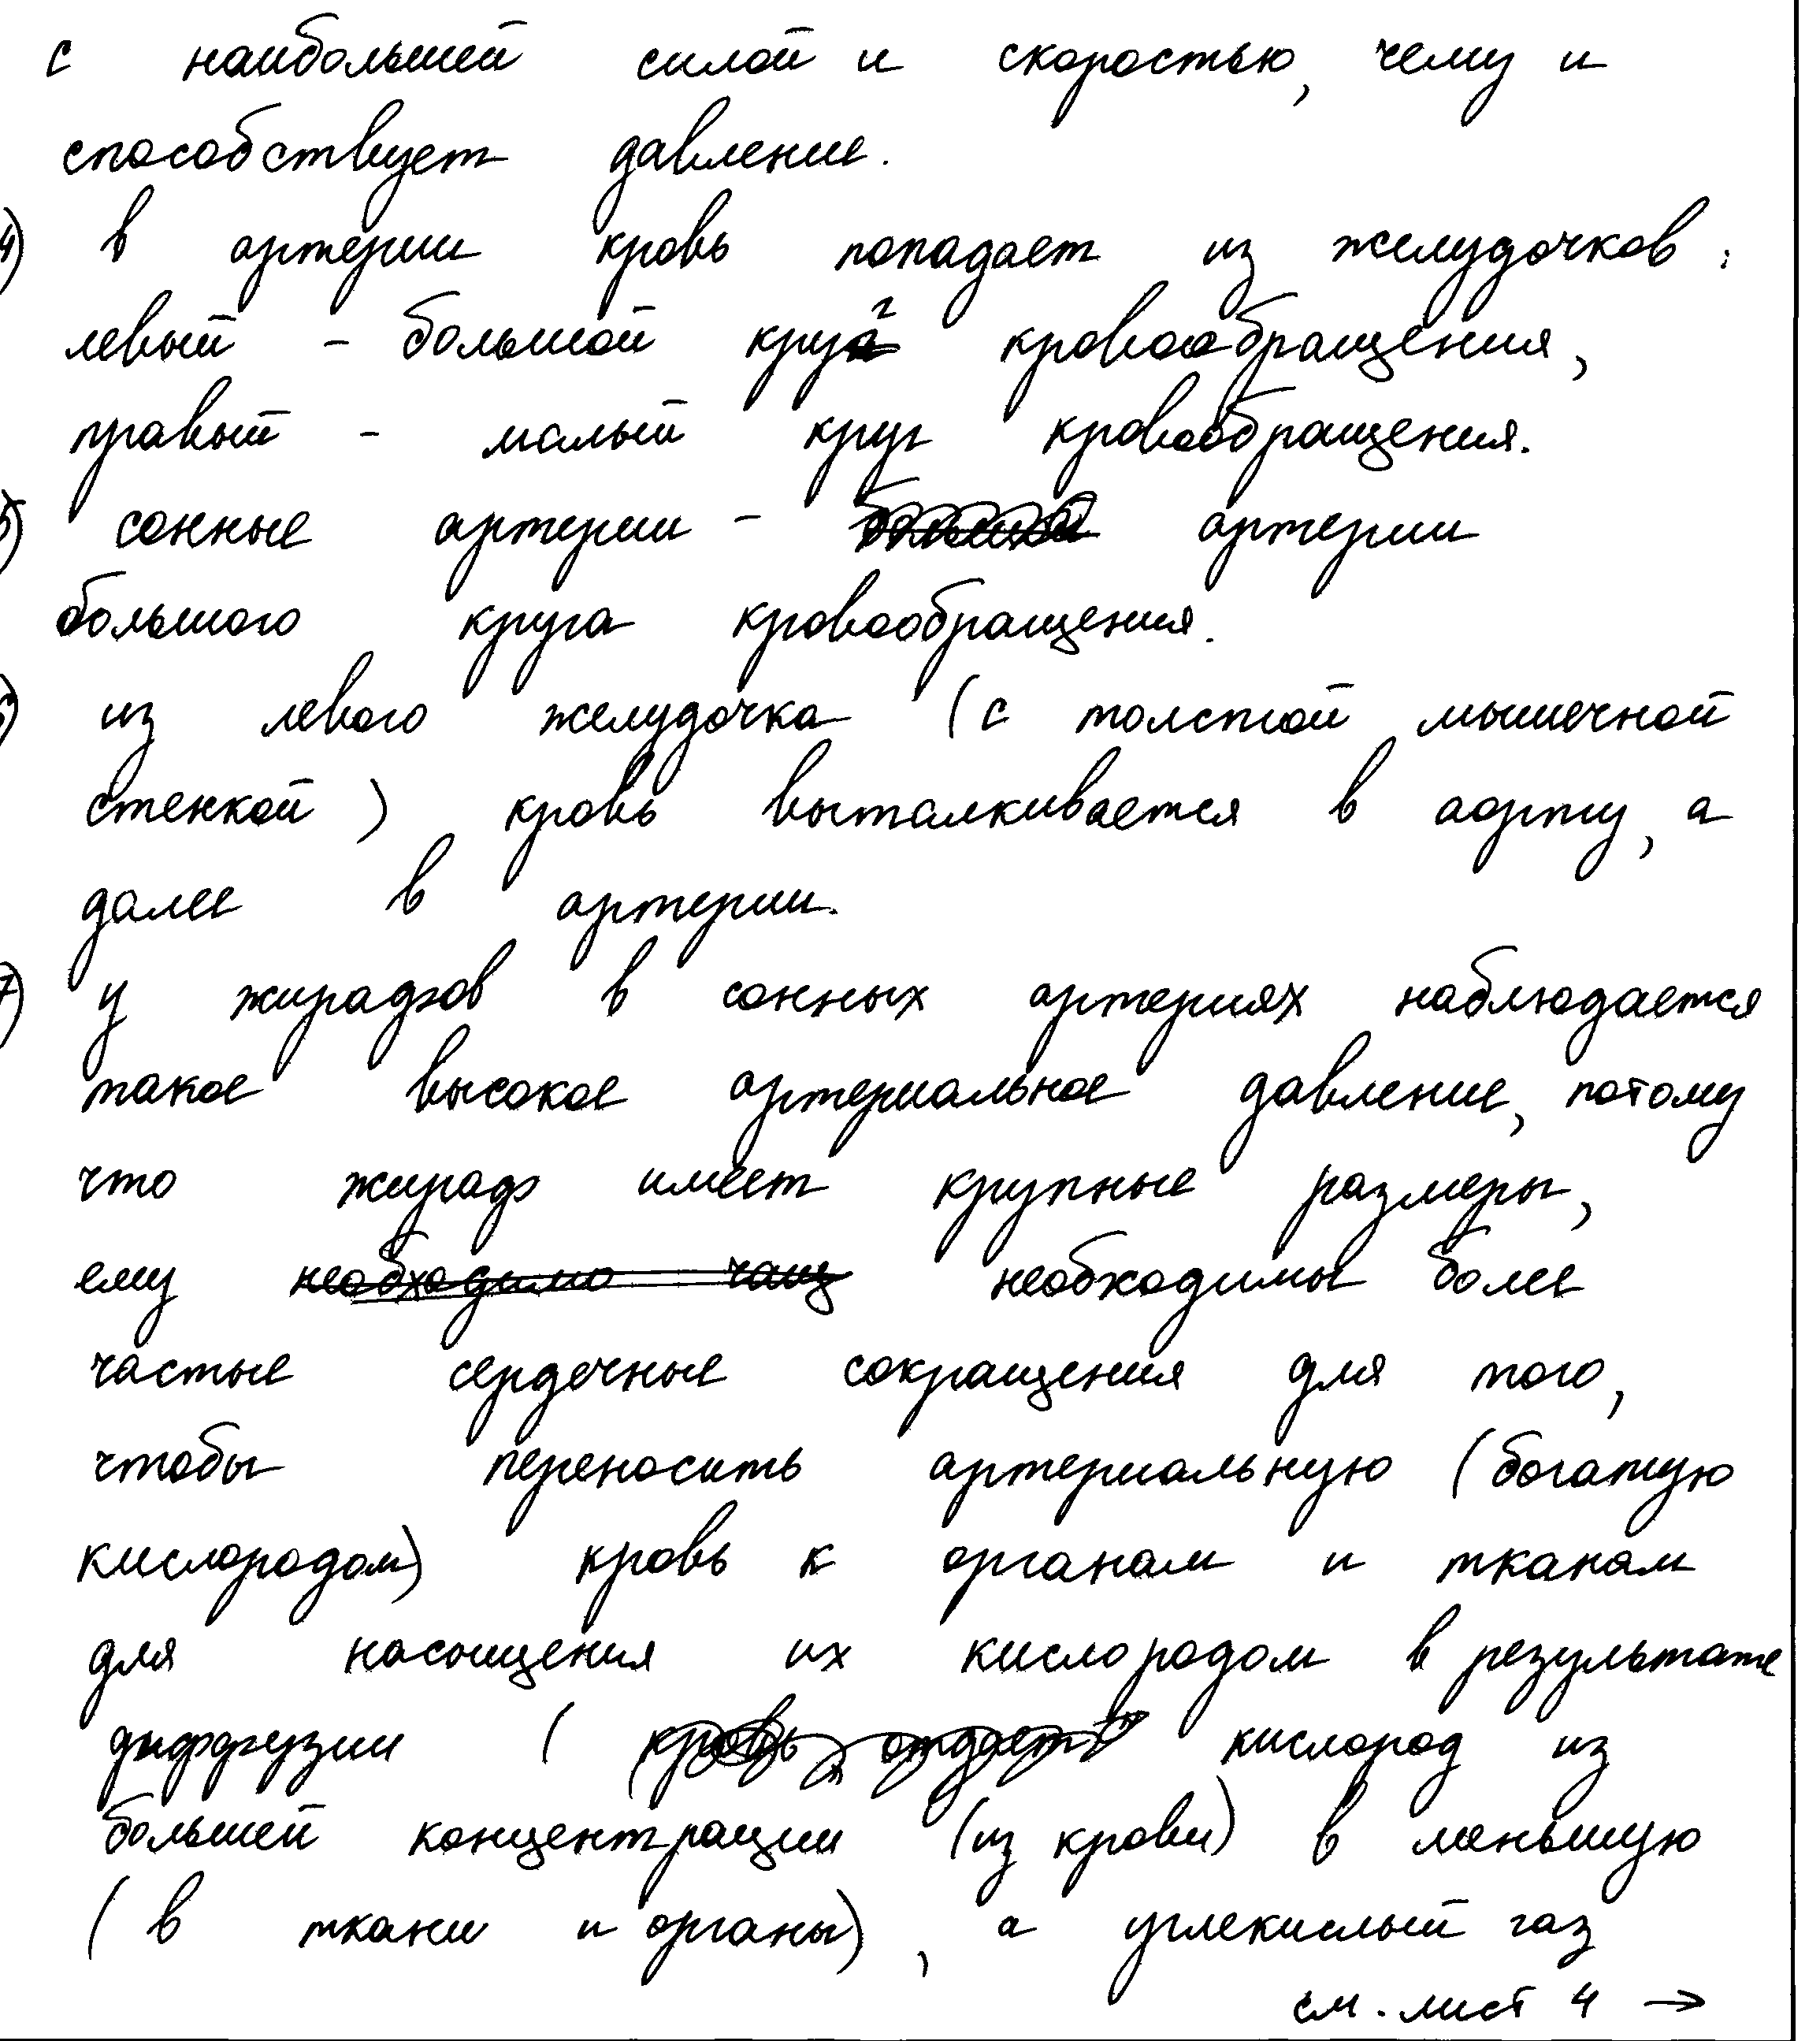 с наибольшей силой и скоростью, чему и
способствует давление.
4) в артерии кровь попадает из желудочков:
левый - большой круг кровообращения,
правый - малый круг кровообращения.
5) сонные артерии - артерии
большого круга кровообращения.
6) из левого желудочка (с толстой мышечной
стенкой) кровь выталкивается в аорту, а
далее в артерии.
7) у жирафов в сонных артериях наблюдается
такое высокое артериальное давление, потому
что жираф имеет крупные размеры,
ему необходимо чащ необходимы более
частые сердечные сокращения для того,
чтобы переносить артериальную (богатую
кислородом) кровь к органам и тканам
для насыщения их кислородом в результате
диффузии (кровь отдает кислород из
большей концентрации (из крови) в меньшую
(в ткани и органы), а углекислый газ
см. лист 4 →